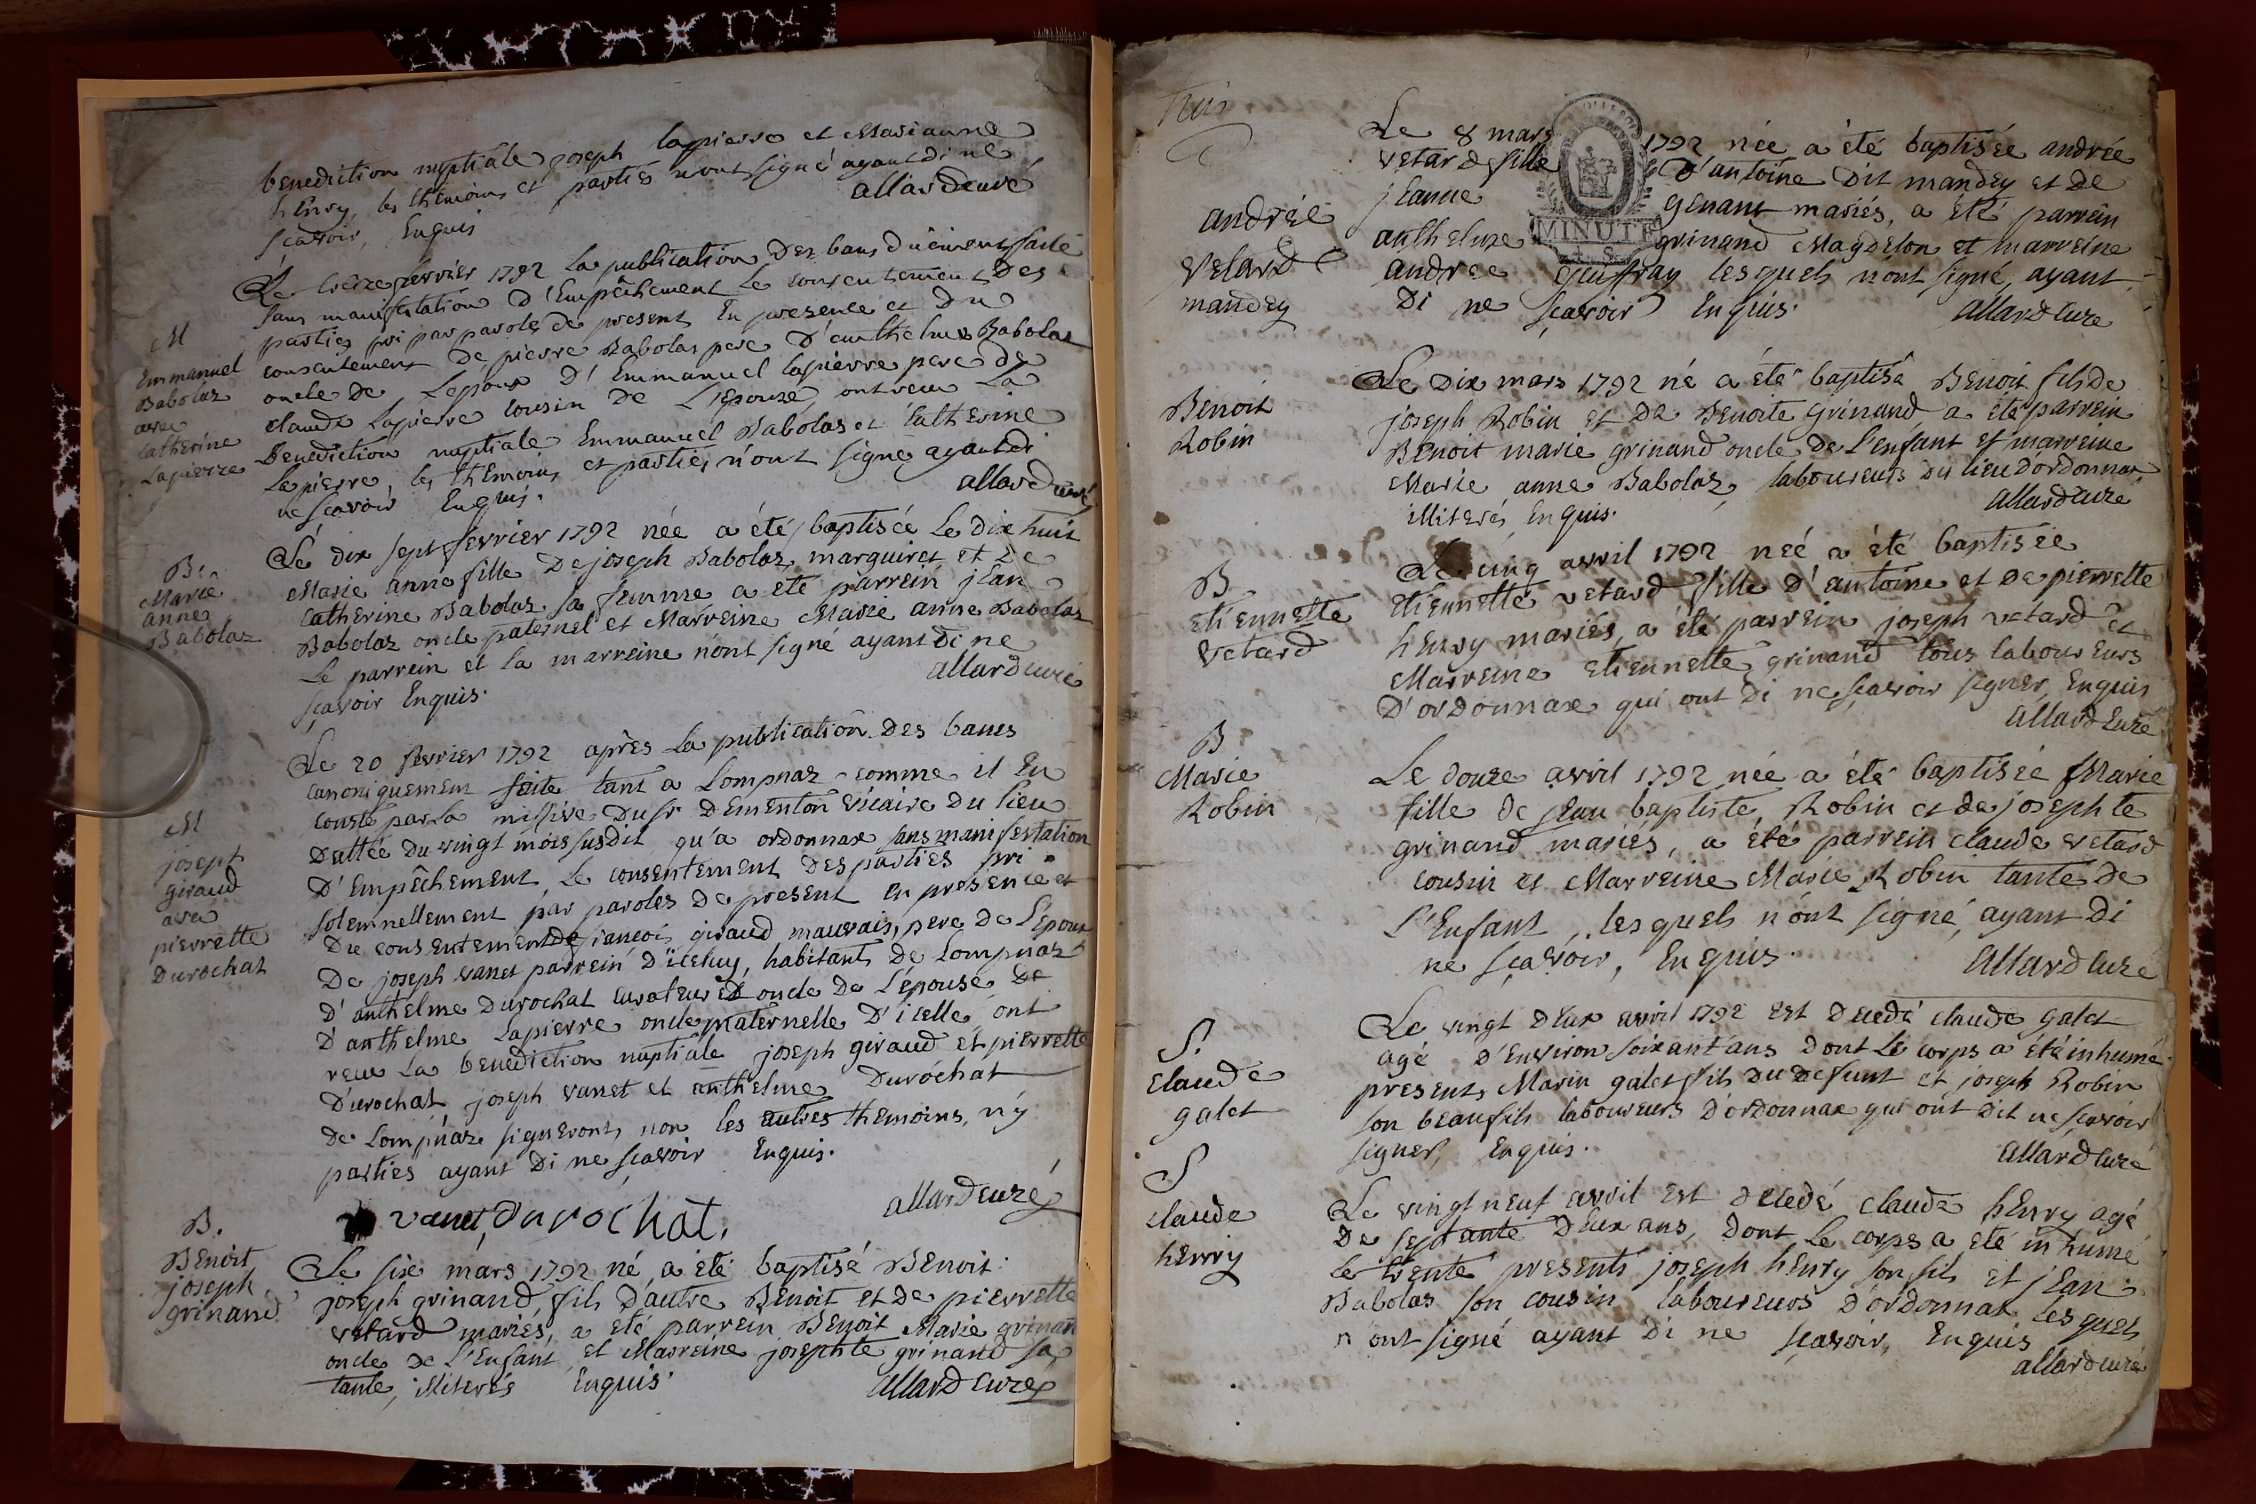 benediction nuptiale joseph lapierre et Marianne
henry, les themoins et parties n'ont signé ayant di ne
sçavoir, Enquis
allard curé
M
Emmanuel
Babolaz
avec
Catherine
Lapierre
Le treize fevrier 1792 la publication des bans duëment faite
sans manifestation d'Empêchement le consentement des
parties pri par paroles de present En presence et du
consentement de pierre Babolas pere d'anthelme Babolaz
oncle de Lepoux d'Emmanuel lapierre pere de
claude Lapierre cousin de L'epouze, ont reçu La
Benediction nuptiale Emmanuel Babolas et Catherine
Lapierre, les themoins et parties n'ont signe ayant di
ne sçavoir Enquis.
allard curé
B
Marie
anne
Babolaz
Le dix sept fevrier 1792 née a été baptisée le dix huit
Marie anne fille de joseph Babolaz marguiret et de
Catherine Babolaz sa femme a eté parrein jean
Babolaz oncle paternel et Marreine Marie anne Babolaz
Le parrein et la marreine n'ont signé ayant di ne
sçavoir Enquis.
allard curé
M
joseph
giraud
avec
pierrette
Durochat
Le 20 fevrier 1792 après la publication des bans
canoniquement faite tant a Lompnaz comme il En
conste par la missive du sr dementon vicaire du lieu
dattée du vingt mois susdit qu'a ordonnax sans manifestation
D'Empêchement, le consentement des parties pri
solemnellement par paroles de present en presence et
Du consentement de françois giraud mauvais, pere de L'epoux
De joseph vanet parrein d'icelluy, habitants de Lompnaz
D'anthelme Durochat curateur et oncle de L'épouse et
D'anthelme Lapierre oncle maternelle D'icelle ont
reçu la benediction nuptiale joseph giraud et pierrette
Durochat joseph vanet et anthelme Durochat
de Lompnaz signeront, non les autres themoins, n'y
parties ayant di ne sçavoir Enquis.
allard curé
vanet, durochat.
B.
Benoit
joseph
grinand
Le six mars 1792 né a été baptisé Benoit
joseph grinand, fils d'autre Benoit et de pierrette
vetard mariés, a eté parrein Benoit Marie grinan
oncle de L'Enfant et Marreine josephte grinand sa
tante, illiterés Enquis.
allard curé
trois
andrée
vetard
mandey
Le 8 mars 1792 née a été baptisée andrée
vetard fille d'antoine dit mandey et de
jeanne genant mariés, a été parrein
anthelme grinand Magdelon et marreine
andree geuffray lesquels n'ont signé, ayant
Di ne sçavoir Enquis.
allard curé
MINUTE
Benoit
Robin
Le Dix mars 1792 né a été baptisé Benoit fils de
joseph Robin et de Benoite grinand a été parrein
Benoit marie grinand oncle de L'enfant et marreine
Marie anne Babolaz, laboureurs du lieu dordonnax
illiterés Enquis.
allard curé
B
Etiennette
vetard
Le cinq avril 1792 neé a été baptisée
Etiennette vetard fille d'antoine et de pierrette
henry mariés, a été parrein joseph vetard et
Marreine Etiennette grinand tous laboureurs
D'ordonnax qui ont di ne sçavoir signer, Enquis
allard curé
B
Marie
Robin
Le douze avril 1792 née a été baptisée Marie
fille de jean baptiste Robin et de josephte
grinand mariés, a été parrein claude vetard
cousin et Marreine Marie Robin tante de
L'Enfant, lesquels n'ont signé, ayant di
ne sçavoir, Enquis.
allard curé
S.
Claude
galet
Le vingt deux avril 1792 est decedé claude galet
agé d'environ soixant ans dont le corps a été inhumé
present, Marin galet fils du defunt et joseph Robin
son beaufils laboureurs d'ordonnax qui ont dit ne sçavoir
signer, Enquis.
allard curé
S
claude
henry
Le vingt neuf avril est decedé claude henry agé
De septante deux ans, dont le corps a eté inhumé
le trente presents joseph henry son fils et jean
Babolas son cousin laboureurs d'ordonnax lesquels
n'ont signé ayant di ne sçavoir, Enquis
allard curé